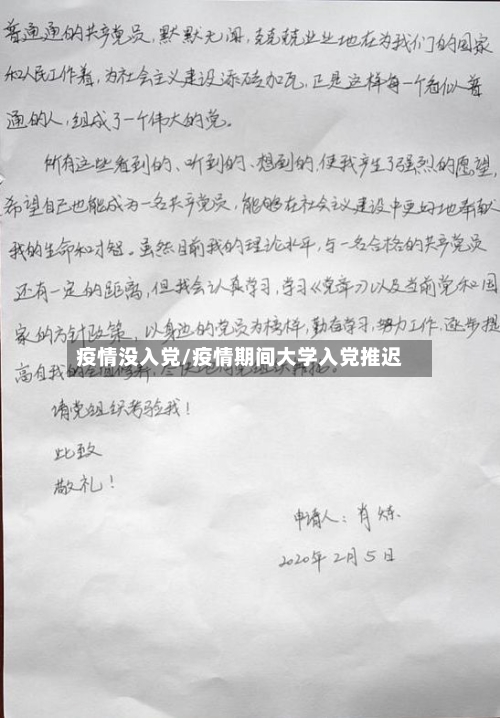 普通通的共产党员，默默无闻，兢兢业业地在为我们的国家
和人民工作着，为社会主义建设添砖加瓦，正是这样每一个看似普
通的人，组成了一个伟大的党。
所有这些看到的、听到的、想到的，使我产生了强烈的愿望，
希望自己也能成为一名共产党员，能够在社会主义建设中更好地奉献
我的生命和才智。虽然目前我的理论水平，与一名合格的共产党员
还有一定的距离，但我会认真学习，学习《党章》以及当前党和国
家的方针政策，以身边的党员为榜样，勤奋学习，努力工作，逐步提
疫情没入党/疫情期间大学入党推迟
高自我的
请党组织考验我！
此致
敬礼！
申请人：肖烁
2020年2月5日